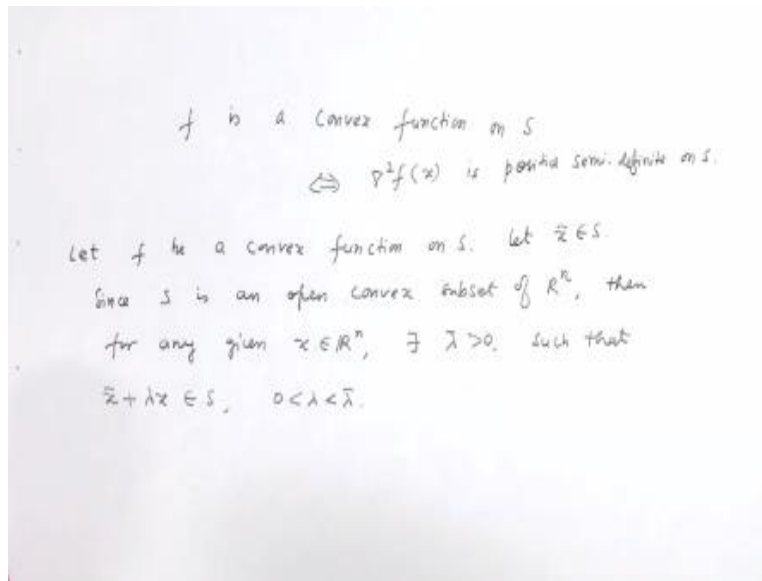 f is a convex function on S
⇔ ∇²f(x) is positive semi-definite on S.
Let f be a convex function on S. Let x̄ ∈ S.
Since S is an open convex subset of Rⁿ, then
for any given x ∈ Rⁿ, ∃ λ̄ >0. such that
x̄ + λx ∈ S, 0<λ<λ̄.